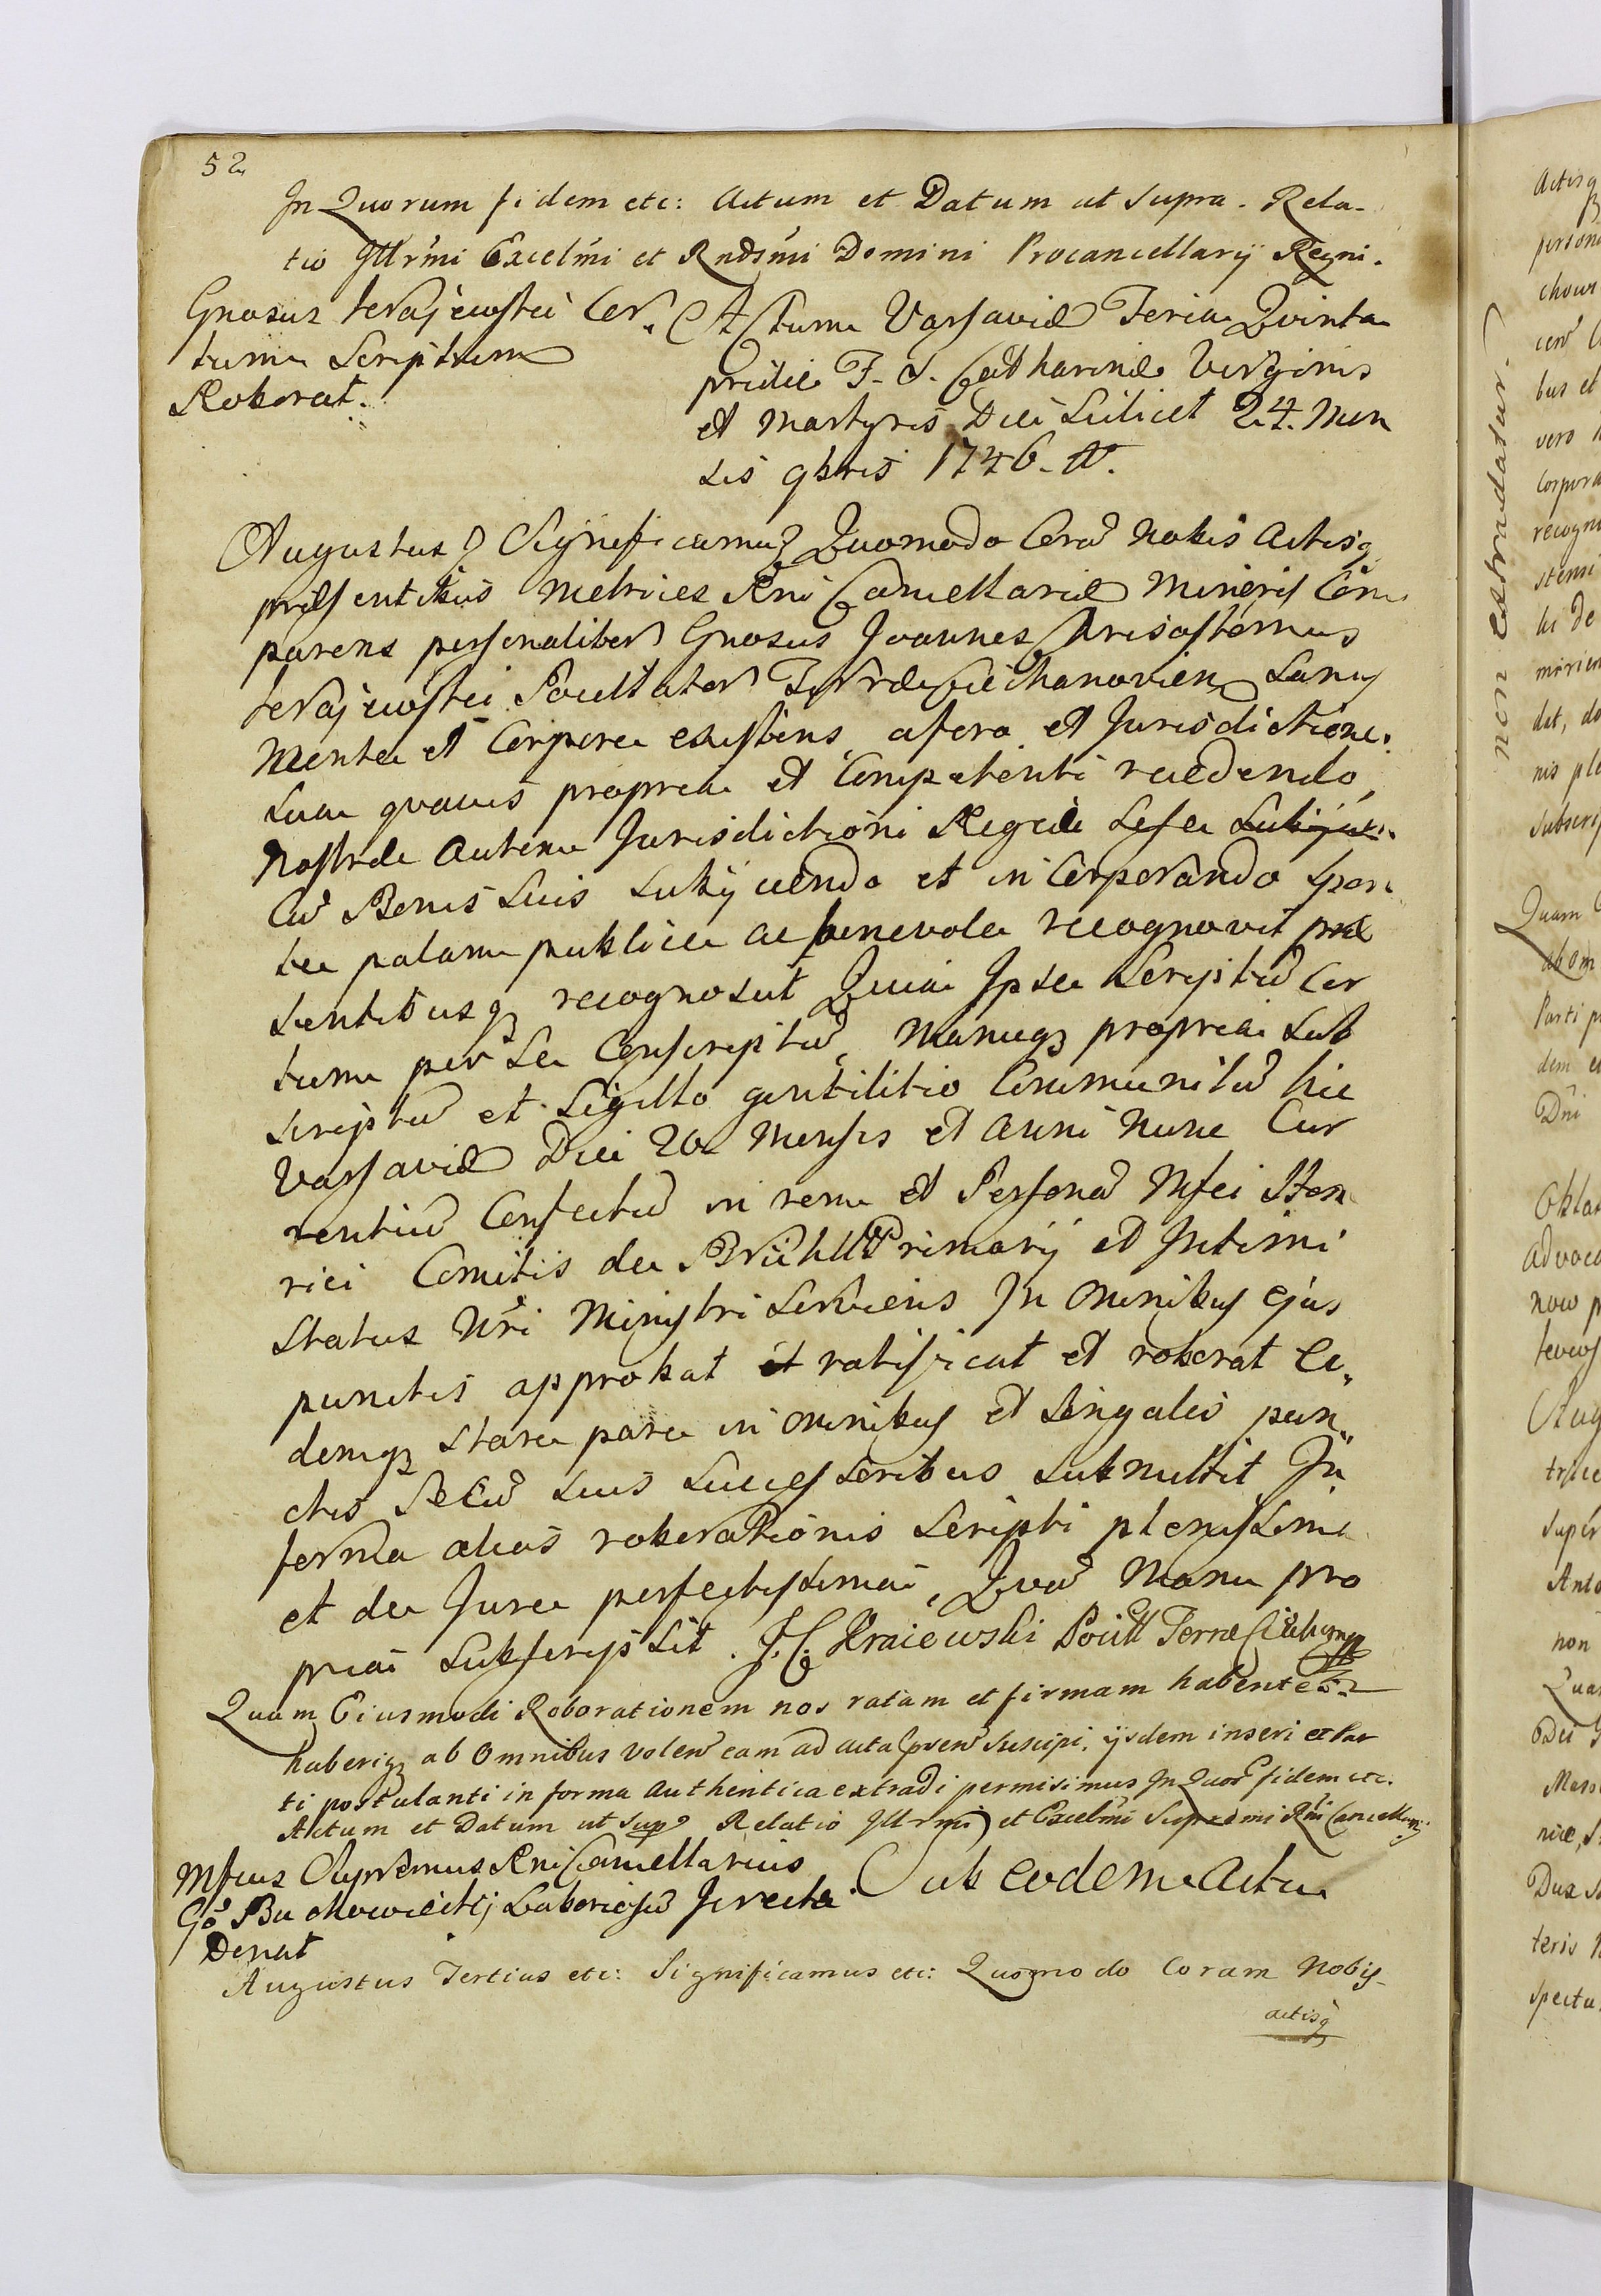 52
In Quorum fidem etc: Actum et Datum ut supra. Rela-
tio Illrmi Excelmi et Rndsmi Domini Procancellarij Regni.
Gnosus Krajewski Cer
tum Scriptum
Roborat.
Actum Varsaviæ Feria Quinta
pridie F. S. Catharinæ Virginis
et Martyris Die Scilicet 24. Men
sis 9bris 1746. A.
Augustus 3 Significamus Quomodo Corā Nobis Actisq
præsentibus Metrices Rni Cancellariæ Minoris Com
parens personaliter Gnosus Joannes Chrisostomus
Krajewski Pocillator Terræ Ciechanovien Sanus
Mente et Corpore existens, a foro et Jurisdictione
sua quavis propria et Competenti recedendo,
Nostræ Autem Jurisdictioni Regiæ Sese
Cū Bonis Suis Subijciendo et incorporando Spon
te palam publice ac benevole recognovit præ
sentibusq recognoscit Quia Ipse Scriptū Cer
tum per Se Conscriptū, Manuq propria Sub
scriptū et Sigillo gentilitio Communitū hic
Varsaviæ Die 20 Mensis et Anni Nunc Cur
rentiū Confectū in rem et Personā Mfci Hen
rici Comitis de Brühl Primarij et Intimi
Status Nri Ministri Serviens In Omnibus ejus
punctis approbat et ratificat et roborat Ei
demq Stare pare in Omnibus et Singulis pun
ctis Se Cū Suis Successoribus Submittit In
forma alias roborationis Scripti plenissima
et de Jure perfectissima, Quā Manu pro
pria Subscripsit. J. C. Kraiewski Pocill Terræ Ciechan
Quam Eiusmodi Roborationem nos ratam et firmam habentes
haberiq ab Omnibus volen eam ad acta pren Suscipi, ijsdem inseri et Par
ti postulanti in forma Authentica extradi permisimus In Quor fidem etc.
Actum et Datum ut Sup Relatio Illrmi et Excelmi Supremi Rni Cancellarij
Mfcus Supremus Rni Cancellarius
Go Buchowiecki Laboriosū
Donat
Sub eodem Actu
Augustus Tertius etc: Significamus etc: Quomodo Coram Nobis
actisq
non extradatur.
Actisq
person
chow
cen
bus et
vero
Corpora
recogn
stensi
hi de
dat, do
nis ple
Subscrip
Quam
ab om
Parti
dem
Dni
Oblat
Advoca
now p
Aug
super
Anto
non
Qua
Dei
Dux
teris
spectu